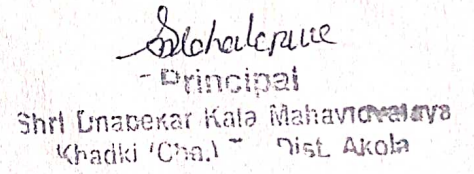 Principal
Shri Dnabekar Kala Mahavidyalaya
Khadki (Cha.) Dist. Akola